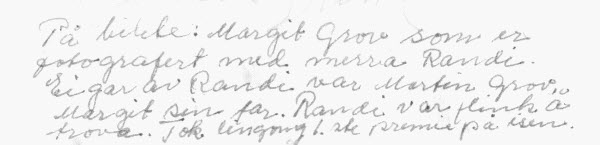 På bilete: Margit Grov som er
fotografert med merra Randi.
Eigar av Randi var Martin Grov,
Margit sin far. Randi var flink å
trova. Tok eingong 1.ste premie på isen.